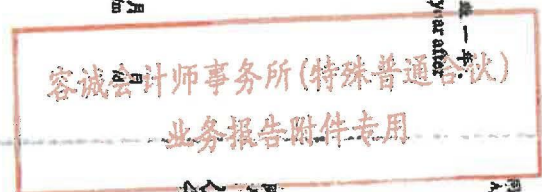 业一年.
year after
月 日
/m /d
容诚会计师事务所(特殊普通合伙)
业务报告附件专用